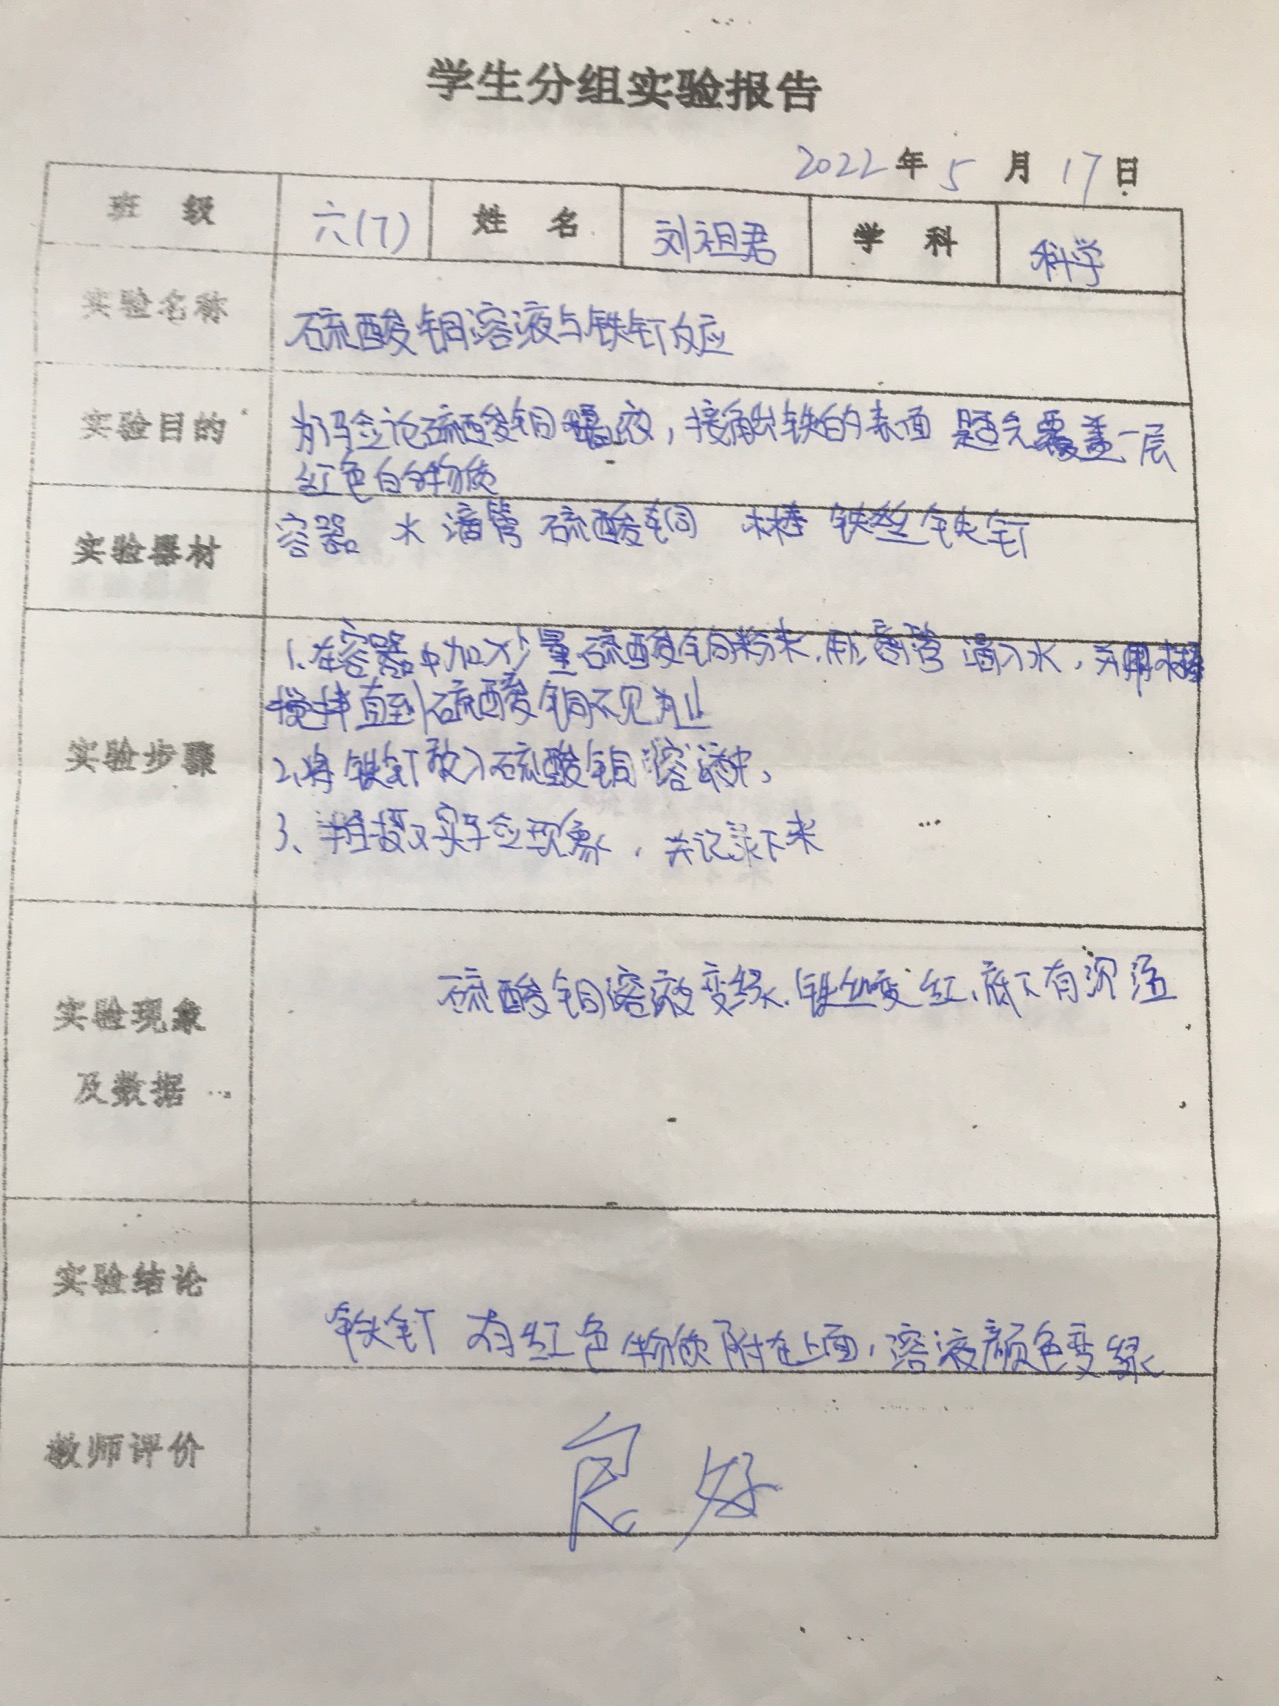 学生分组实验报告
2022年5月17日
班级 六(7) 姓名 刘祖君 学科 科学
实验名称 硫酸铜溶液与铁钉反应
实验目的 为验论硫酸铜 液，接触铁的表面 是否会覆盖一层
红色的物质
实验器材 容器 水 滴管 硫酸铜 木棒 铁丝 铁钉
1、在容器中加少量硫酸铜粉末，用 滴管 滴入水，并用木棒
搅拌直到硫酸铜不见为止
实验步骤
2、将铁钉放入硫酸铜溶液中、
3、 实验现象，并记录下来
硫酸铜溶液变绿、铁丝变红、底下有沉淀
实验现象
及数据
实验结论
铁钉 有红色物质附在上面，溶液颜色变绿
教师评价 良好